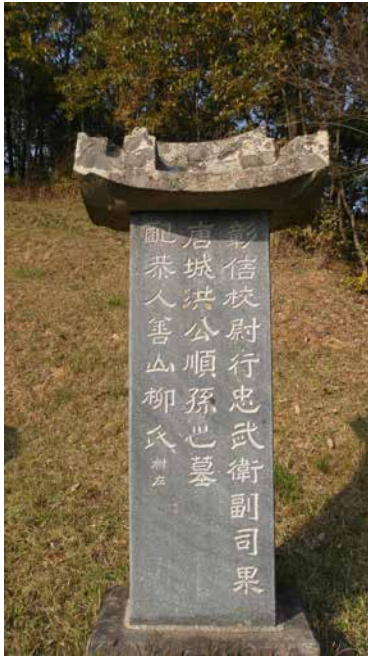 彰信校尉行忠武衛副司果
唐城洪公順孫之墓
配恭人善山柳氏祔左